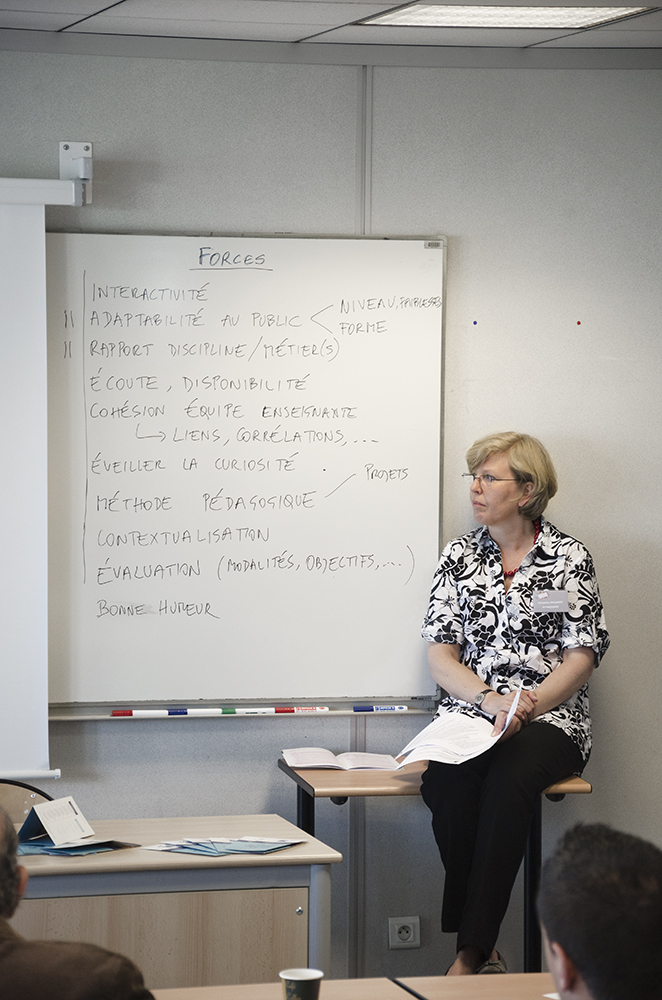 FORCES
INTERACTIVITÉ
ADAPTABILITÉ AU PUBLIC < NIVEAU, FAIBLESSES
FORME
RAPPORT DISCIPLINE/MÉTIER(S)
ÉCOUTE, DISPONIBILITÉ
COHÉSION ÉQUIPE ENSEIGNANTE
↳ LIENS, CORRÉLATIONS, ...
ÉVEILLER LA CURIOSITÉ .
PROJETS
MÉTHODE PÉDAGOGIQUE
CONTEXTUALISATION
ÉVALUATION (MODALITÉS, OBJECTIFS, ...)
BONNE HUMEUR